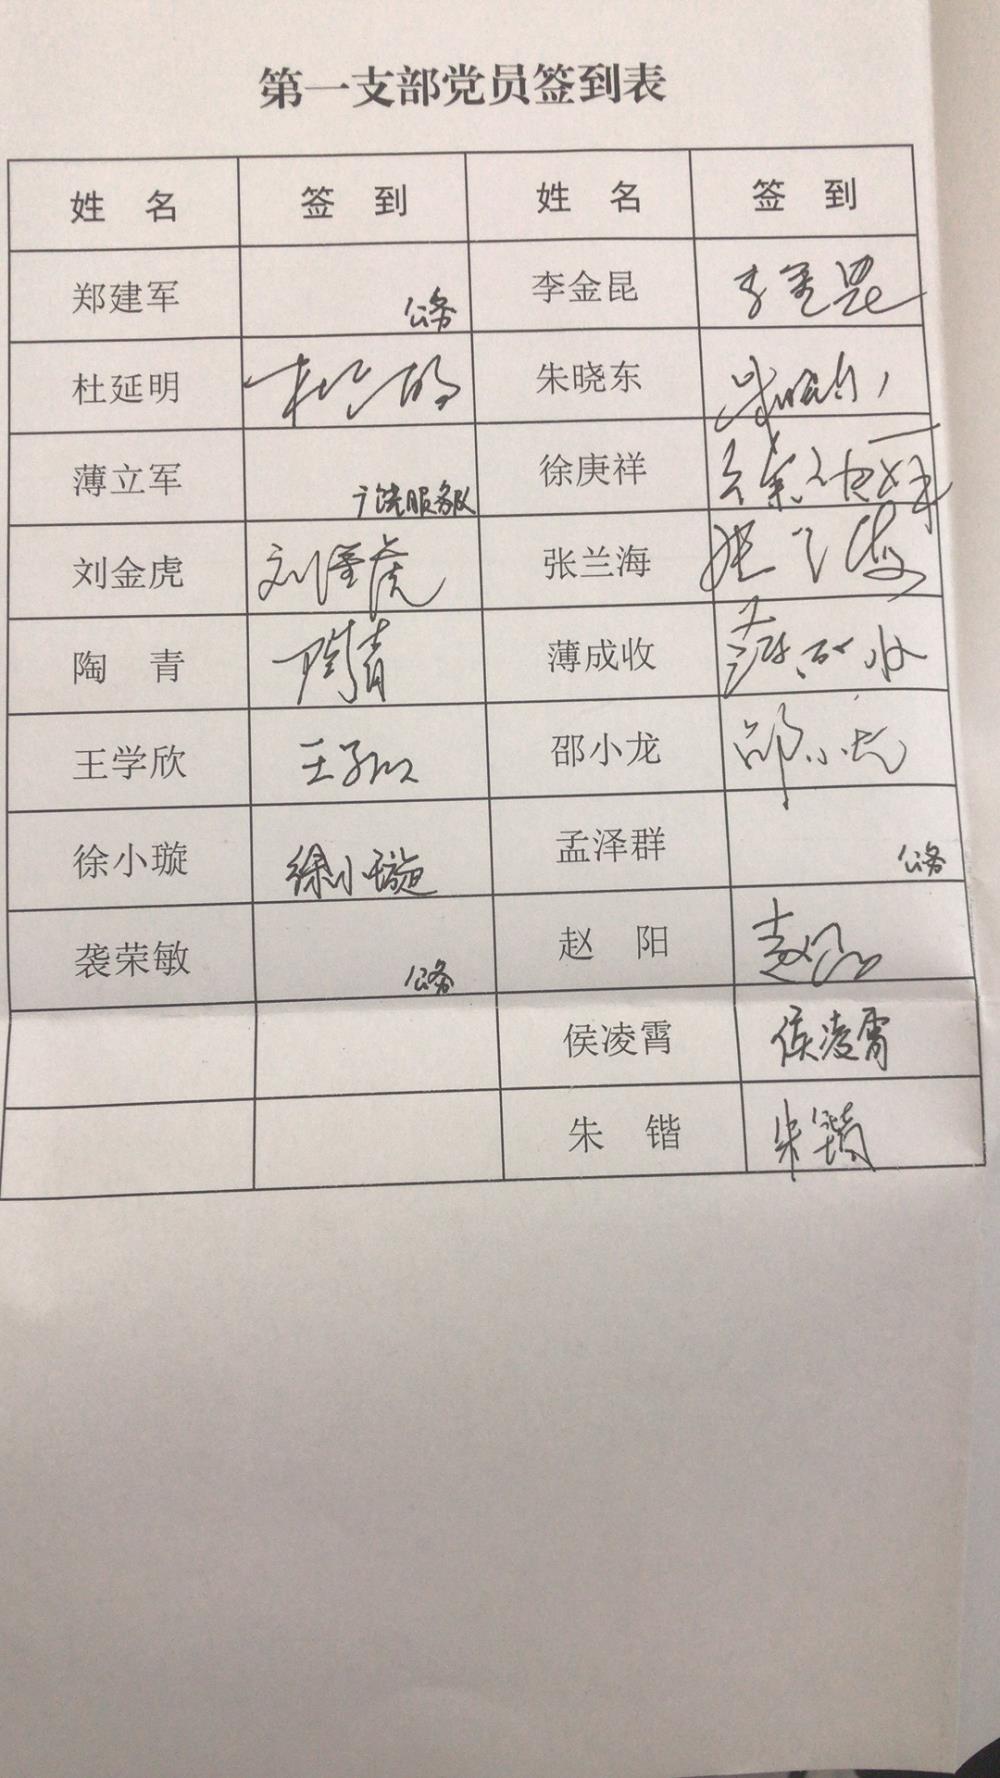 第一支部党员签到表
姓 名 签 到 姓 名 签 到
郑建军 公务 李金昆 李金昆
杜延明 杜延明 朱晓东 朱晓东
薄立军 服务队 徐庚祥 徐庚祥
刘金虎 刘金虎 张兰海 张兰海
陶 青 陶青 薄成收 薄成收
王学欣 王学欣 邵小龙 邵小龙
徐小璇 徐小璇 孟泽群 公务
袭荣敏 公务 赵 阳 赵阳
侯凌霄 侯凌霄
朱 锴 朱锴